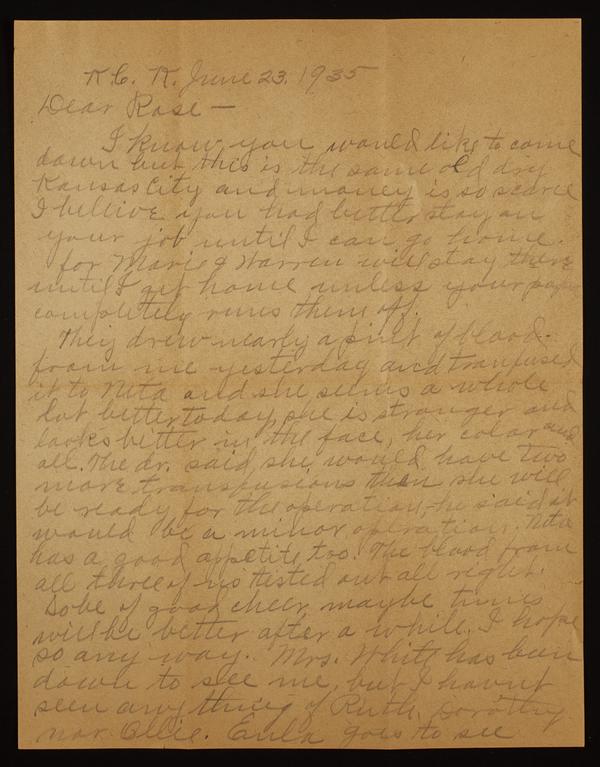 K.C. K. June 23, 1935
Dear Rose —
I know you would like to come
down but this is the same old dry
Kansas City and money is so scarce
I belive you had better stay on
your job until I can go home.
for Marie & Warren will stay there
until I get home unless your papa
completely runs them off.
They drew nearly a pint of blood
from me yesterday and tranfused
it to Neta and she seems a whole
lot better today, she is stronger and
looks better in the face, her color and
all. The dr. said she would have two
more transfusions then she will
be ready for the operation, he said it
would be a minor operation. Neta
has a good appetite too. The blood from
all three of us tested out all right.
So be of good cheer, maybe times
will be better after a while. I hope
so any way. Mrs. White has been
down to see me, but I havnt
seen anything of Ruth, Dorothy
nor Ollie. Eula goes to see